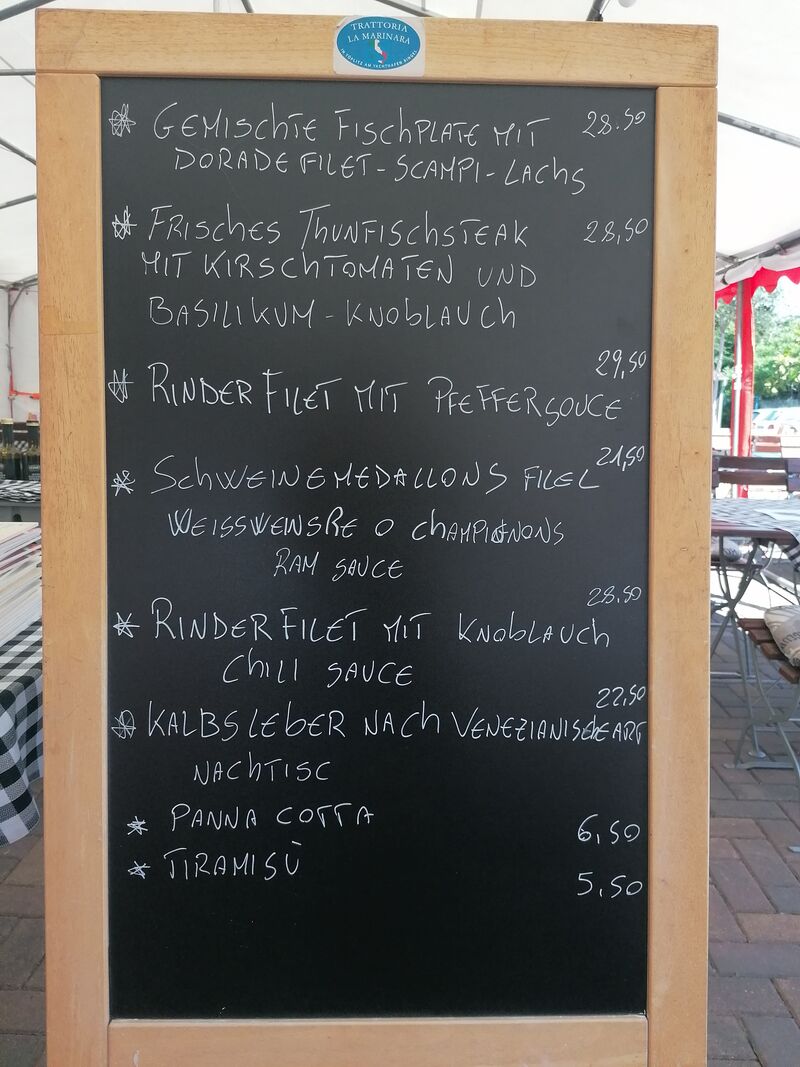 TRATTORIA
LA MARINARA
IN TÖPLITZ AM YACHTHAFEN RINGEL
GEMISCHTE FISCHPLATE MIT 28.50
DORADEFILET-SCAMPI-LACHS
FRISCHES THUNFISCHSTEAK 28,50
MIT KIRSCHTOMATEN UND
BASILIKUM-KNOBLAUCH
29,50
RINDERFILET MIT PFEFFERSOUCE
21,50
SCHWEINEMEDALLONS FILEL
WEISSWEINSßE O CHAMPIGNONS
RAM SAUCE
28.50
RINDERFILET MIT KNOBLAUCH
CHILI SAUCE
22,50
KALBSLEBER NACH VENEZIANISCHE ART
NACHTISC
PANNA COTTA 6,50
TIRAMISÙ 5,50